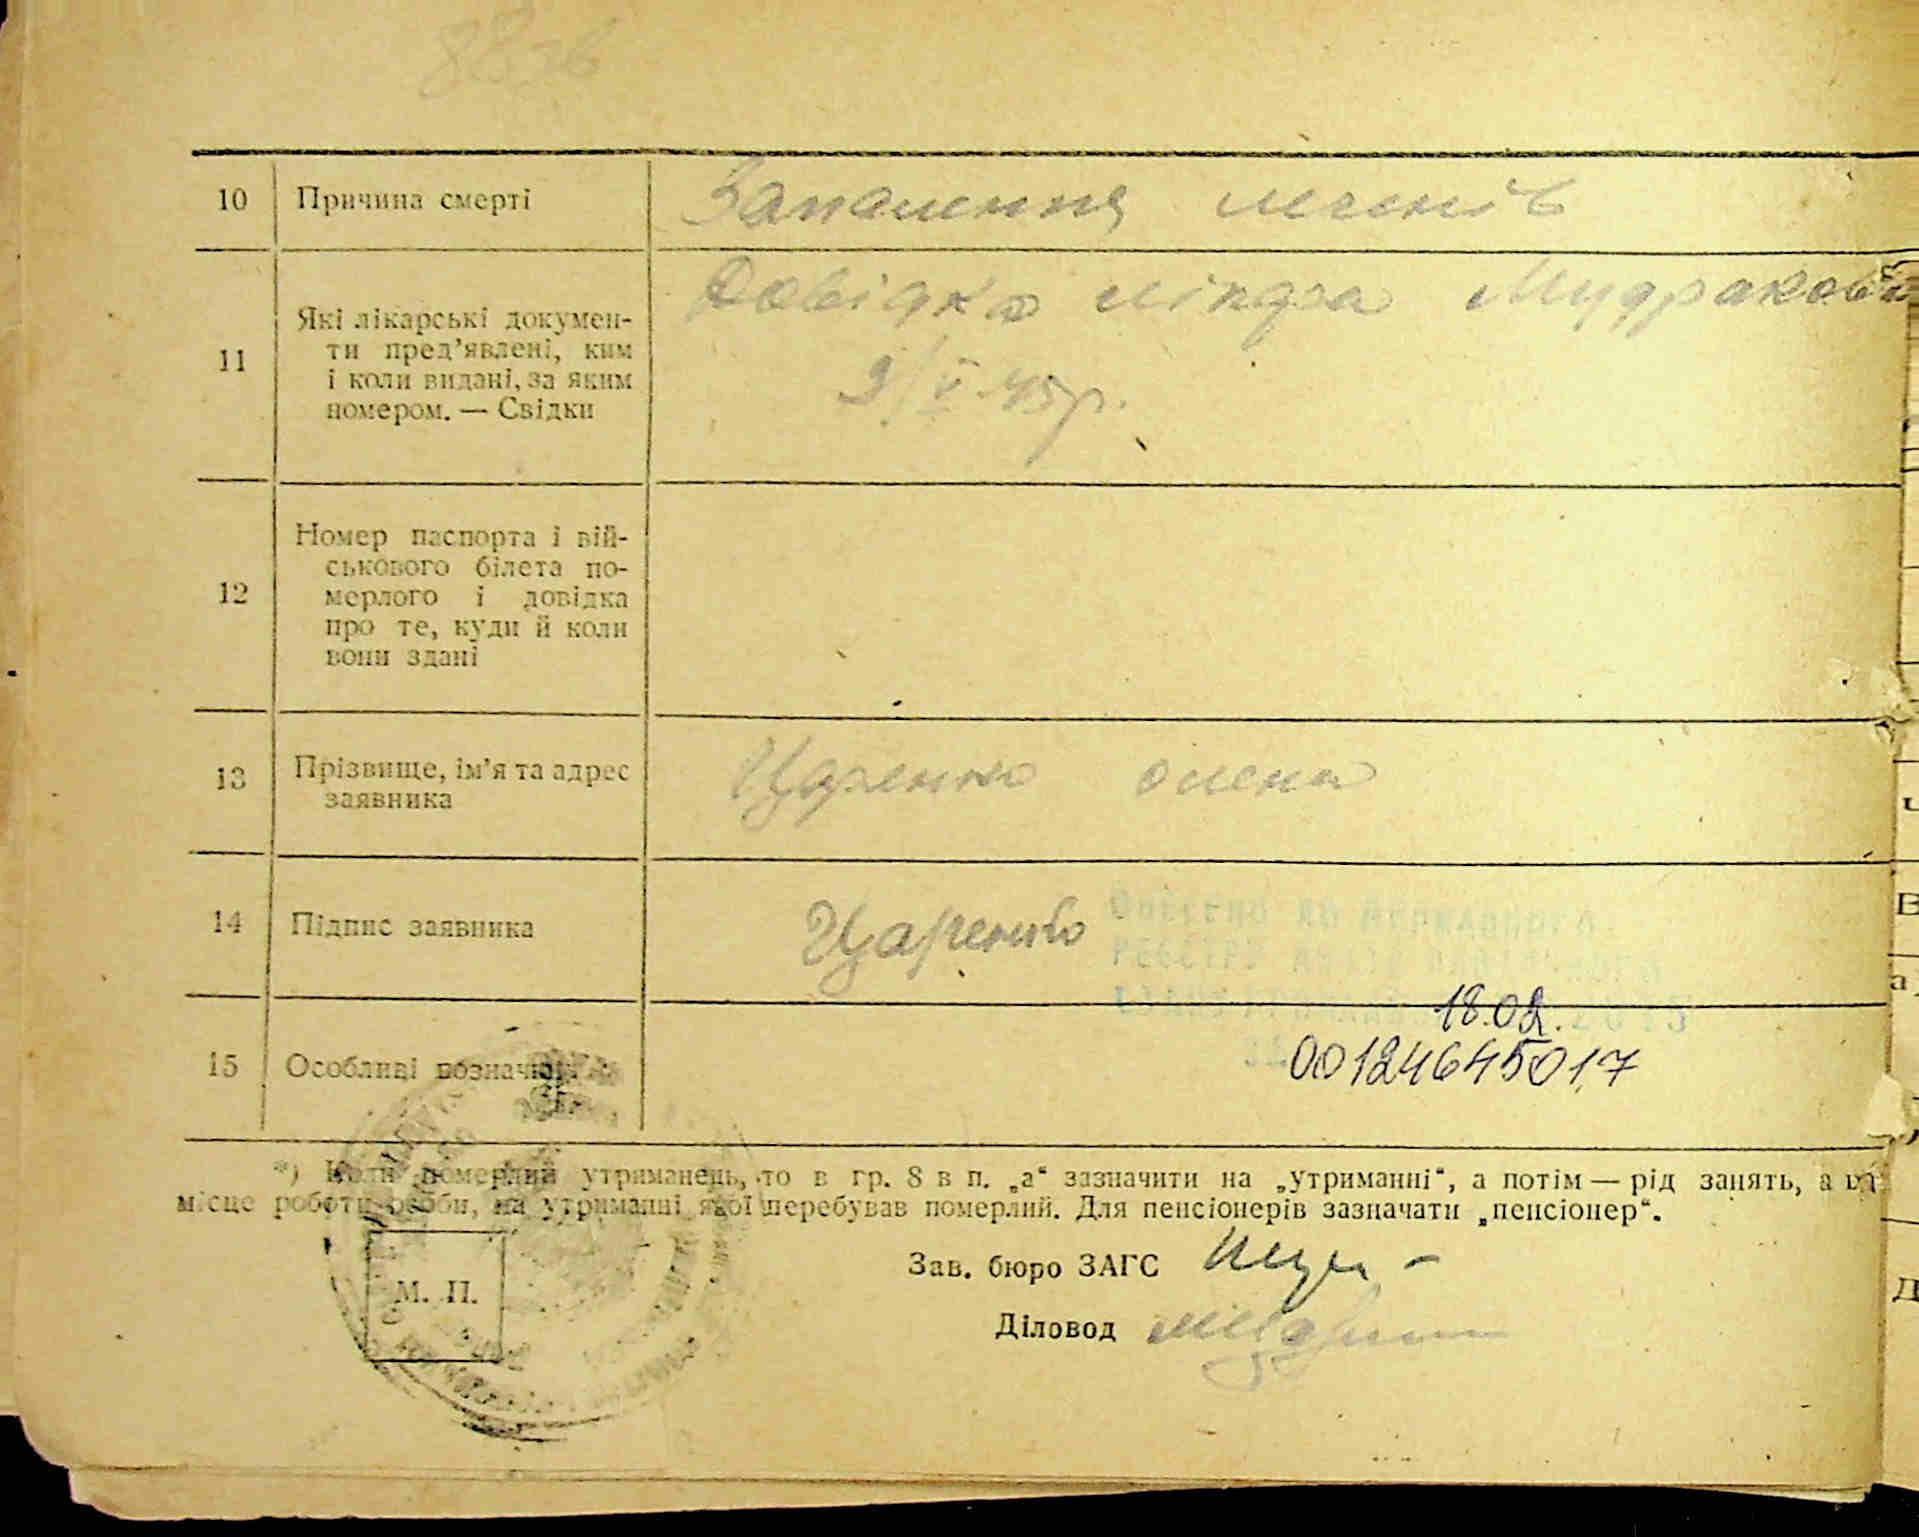 88 зв
10 Причина смерті Запалення легенів
11 Які лікарські докумен-
ти пред’явлені, ким
і коли видані, за яким
номером. — Свідки
Довідка лікаря
9/V 45р.
12 Номер паспорта і вій-
ськового білета по-
мерлого і довідка
про те, куди й коли
вони здані
13 Прізвище, ім’я та адрес
заявника
Царенко Олена
14 Підпис заявника Царенко
Внесено до Державного
реєстру актів цивільного
18.02.
00124645017
15 Особливі позначки
*) Коли померлий утриманець, то в гр. 8 в п. „а“ зазначити на „утриманні“, а потім — рід занять, а
місце роботи особи, на утриманні якої перебував померлий. Для пенсіонерів зазначати „пенсіонер“.
М. П.
Зав. бюро ЗАГС
Діловод